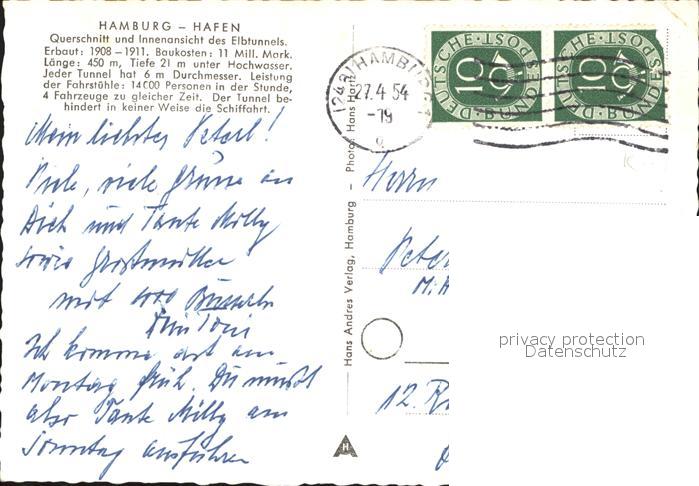 HAMBURG – HAFEN
Querschnitt und Innenansicht des Elbtunnels.
Erbaut: 1908–1911. Baukosten: 11 Mill. Mark.
Länge: 450 m, Tiefe 21 m unter Hochwasser.
Jeder Tunnel hat 6 m Durchmesser. Leistung
der Fahrstühle: 14000 Personen in der Stunde,
4 Fahrzeuge zu gleicher Zeit. Der Tunnel be-
hindert in keiner Weise die Schiffahrt.
Mein liebstes Peterl!
Viele, viele Grüsse an
Dich und Tante Milly
sowie Großmutter
mit 1000 Busserln
Ich komme erst am
Montag früh. Du musst
also Tante Milly am
Sonntag ausführen
Hans Andres Verlag, Hamburg – Photo: Hans Hartz
H
(24a) HAMBURG 1
27.4.54
-19
DEUTSCHE BUNDESPOST
10
DEUTSCHE BUNDESPOST
10
Herrn
Peter
12.
privacy protection
Datenschutz